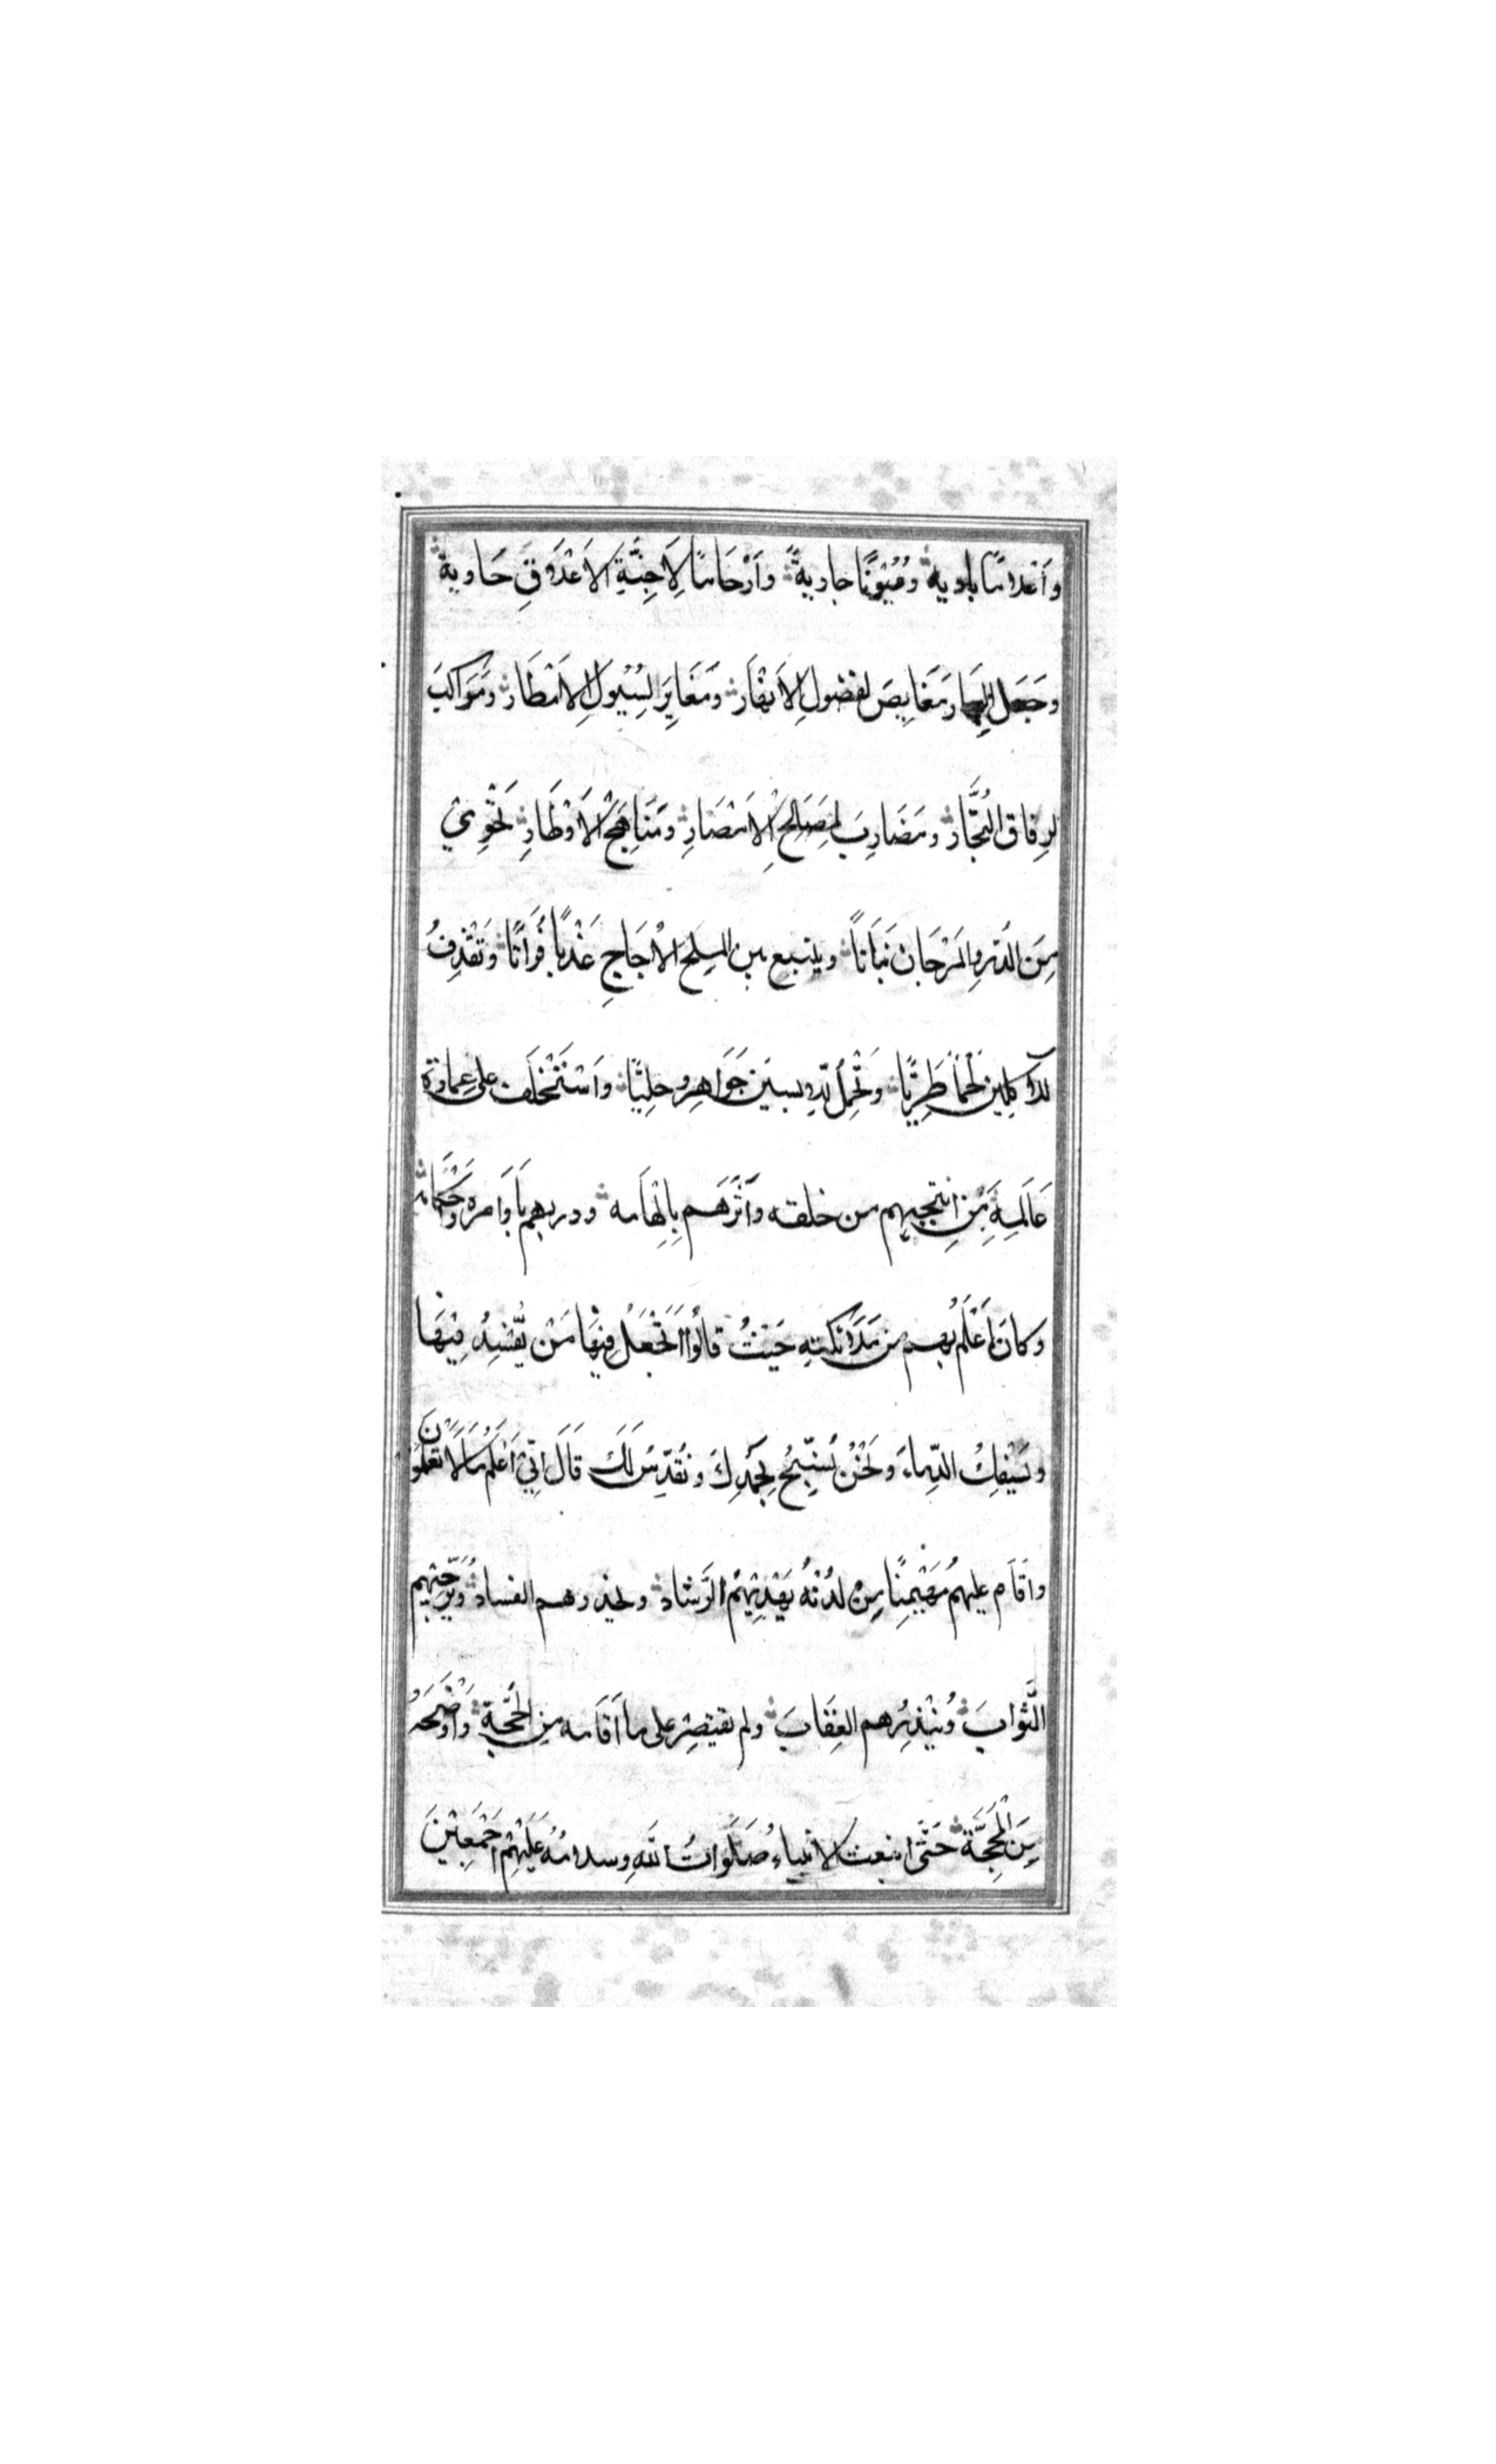 وَأَعْلَامًا بادية وَعُيُونًا جارية وَأَرْحَامًا لِأَجِنَّةِ الْأَعْذَوقِ حَاوية
وجَعَل البحار مَغَايِصَ لفضولِ الْأَنْهَار وَمَغَايِرَ لِسُيُولِ الْأَمْطَار وَمَرَاكِبَ
لرِفاق التُّجَّار ومَضَارِبَ لمَصَالِحِ الْأَمْصَارِ وَمَنَاهِجَ الْأَوْطَارِ تَحْوِيْ
مِنَ الدُّر والمَرْجَان نَبَاتًا وينبع من الملح الْأُجَاجِ عَذْبًا فُرَاتًا وَتَقْذِفُ
للآكِلِين لَحْمًا طَرِيًّا وَتَحْمِلُ للِابسين جَوَاهِر وحِلِيًّا وَاسْتَخْلَف على عِمَارة
عَالَمِهِ مَنِ انتجبهم من خلقه وآثَرَهَم بِإِلْهَامه ودربهم بِأَوَامره وَأَحْكَامه
وكانَ أَعْلَم بُهم من مَلَائكته حَيْثُ قالُوا أَتَجْعَلُ فِيْهَا مَنْ يُفْسِدُ فِيْهَا
ويَسْفِكُ الدِّماءَ وَنَحْنُ نُسَبِّحُ بِحَمْدِكَ ونُقَدِّسُ لَكَ قَالَ اِنِّيْ أَعْلَمُ مَا لَا تَعْلَمُونَ
واقَام عليهمُ مُهَيْمِنًا مِنْ لَدُنْهُ يَهْدِيْهِمُ الرَّشاد ويحذرهم الفساد وَيُرَجِّيْهِم
الثَّوابَ وَيُنْذِرُهم العِقَابَ ولم يقتصِر على ما أَقَامه مِن الحُجَّة وَأَوْضَحَهُ
مِنَ الْمَحَجَّة حَتَّى ابتعث الانبياءُ صَلَوَاتُ اللهِ وسلامُهُ عَلَيْهِمْ أَجْمَعِيْنَ